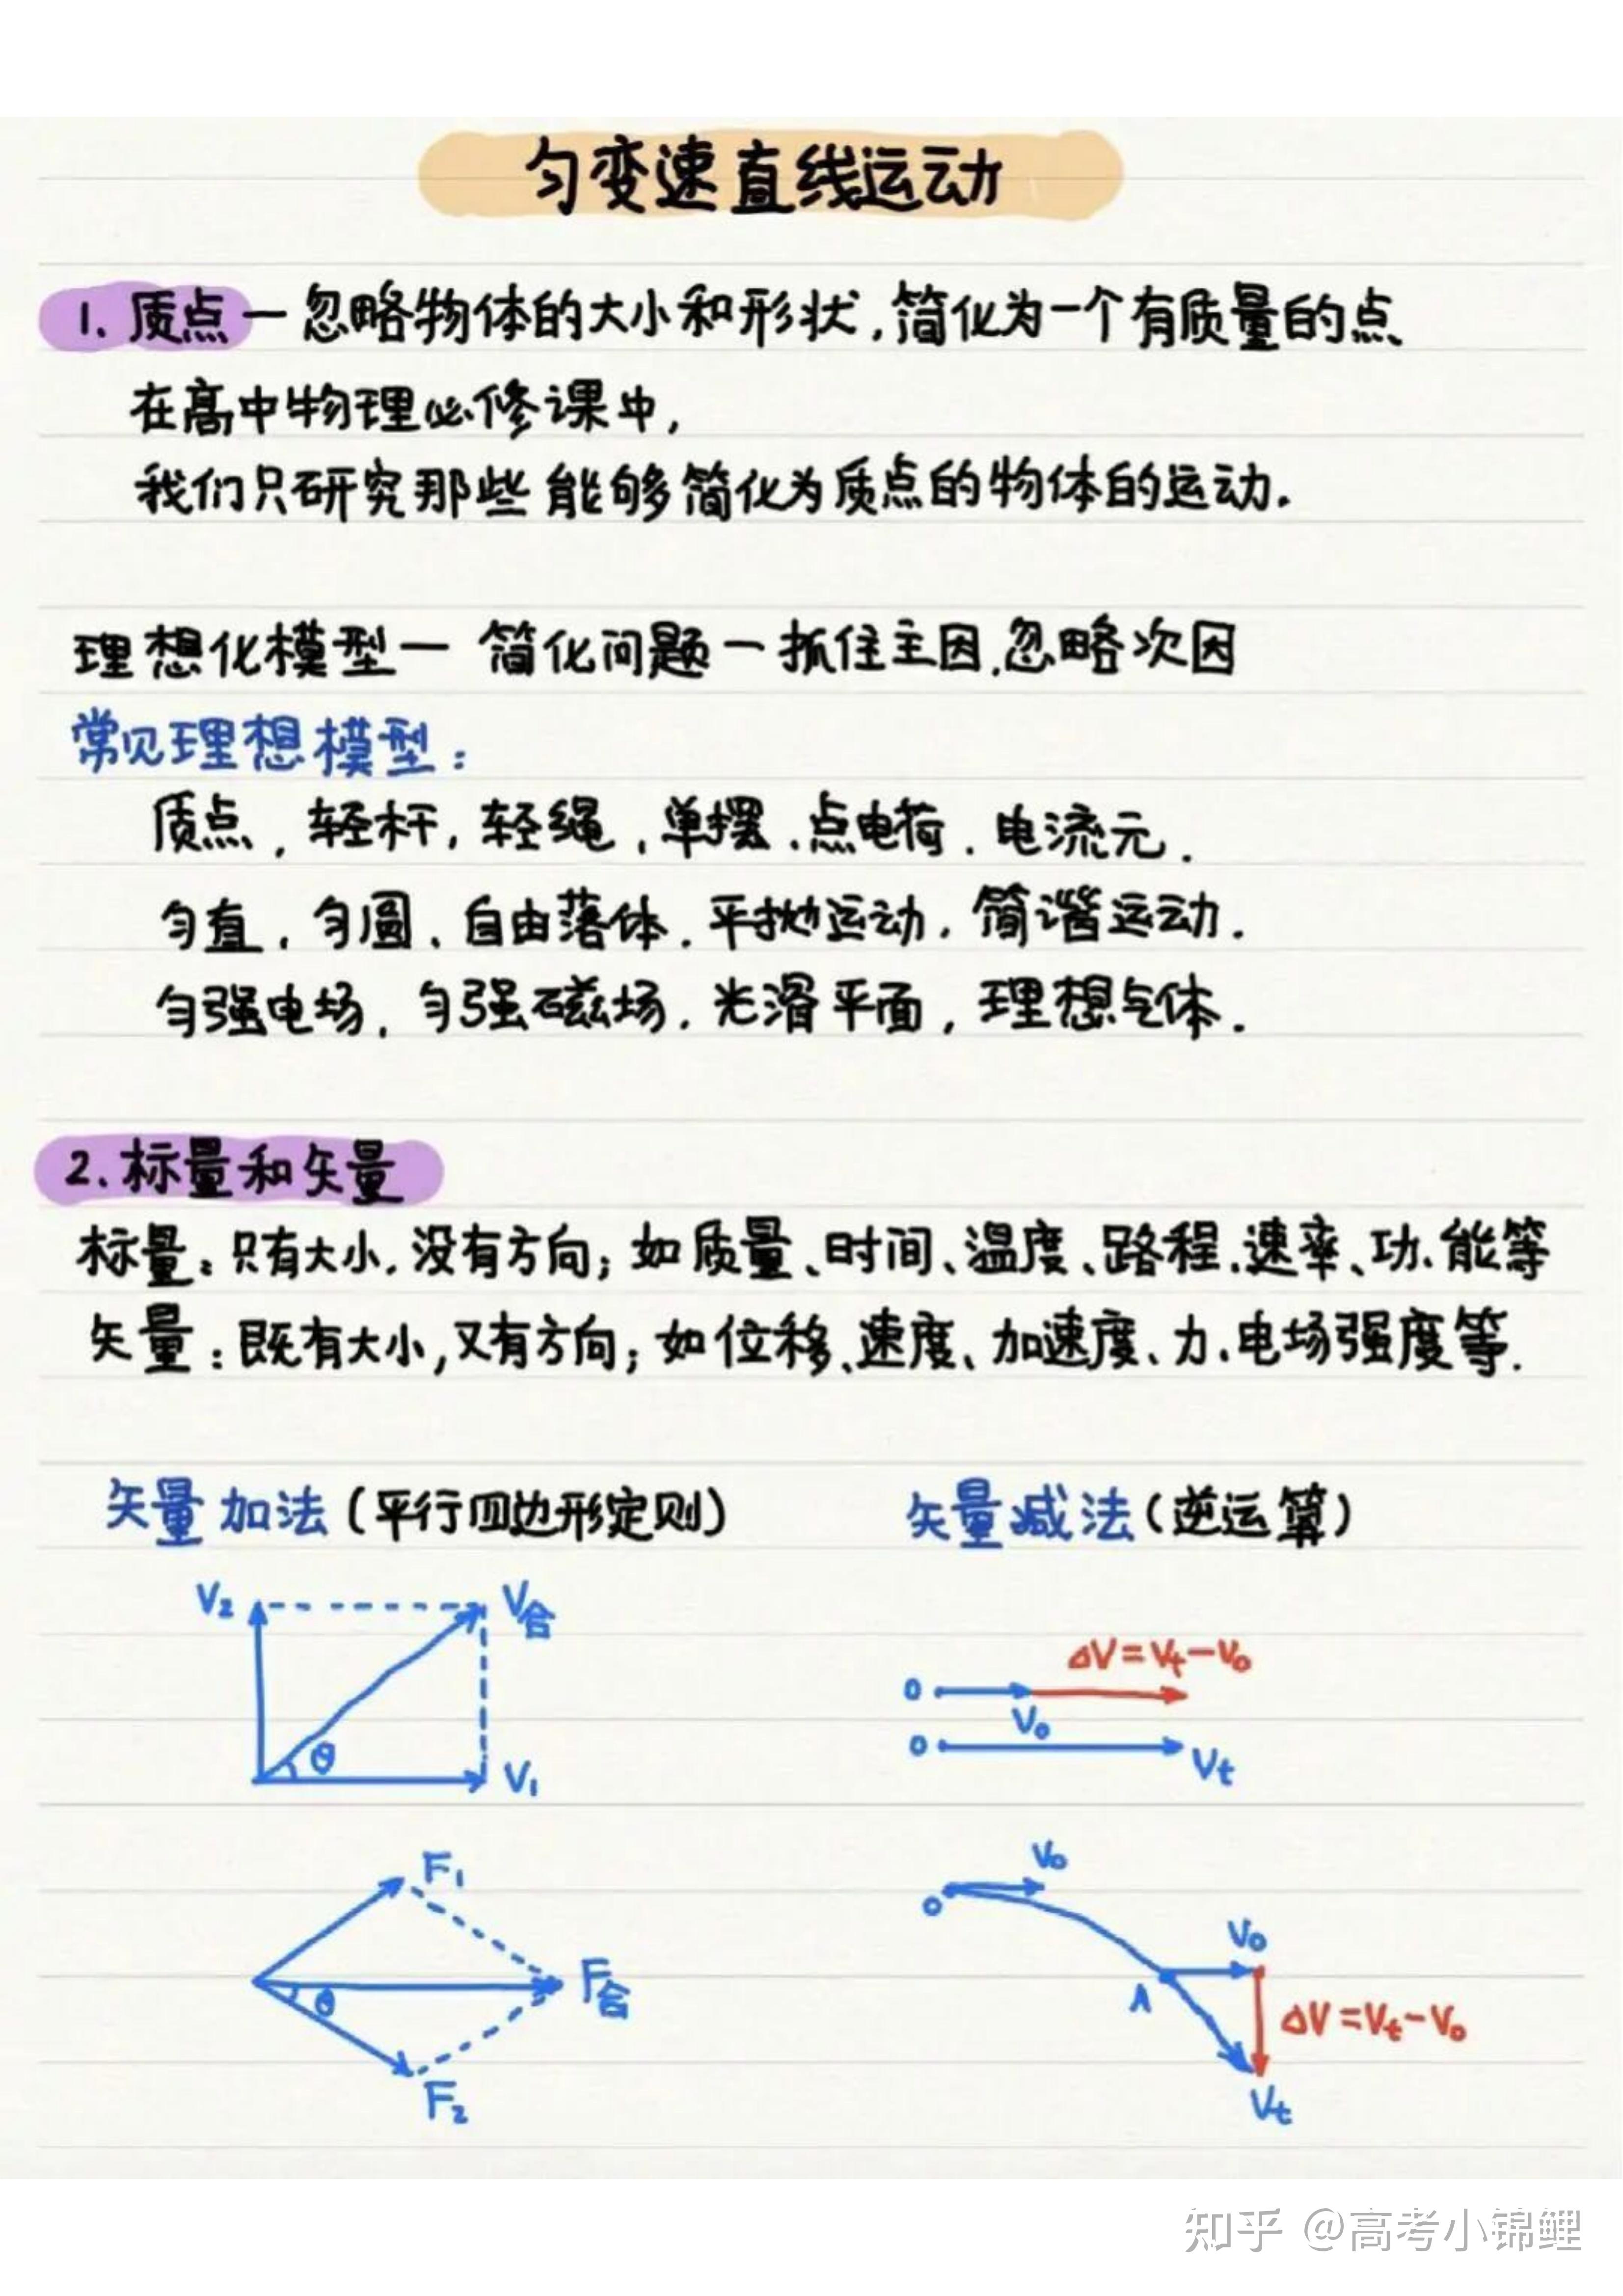 匀变速直线运动
1. 质点 — 忽略物体的大小和形状,简化为一个有质量的点、
在高中物理必修课中,
我们只研究那些能够简化为质点的物体的运动.
理想化模型 — 简化问题 — 抓住主因.忽略次因
常见理想模型:
质点, 轻杆, 轻绳, 单摆、点电荷. 电流元.
匀直, 匀圆、自由落体. 平抛运动, 简谐运动.
匀强电场, 匀强磁场. 光滑平面, 理想气体.
2. 标量和矢量
标量: 只有大小. 没有方向; 如质量、时间、温度、路程.速率、功、能等
矢量: 既有大小,又有方向; 如位移、速度、加速度、力、电场强度等.
矢量加法(平行四边形定则) 矢量减法(逆运算)
V₂ V合
θ V₁
ΔV=Vt-V₀
0 V₀
0 Vt
F₁
θ F合
F₂
V₀
0
V₀
A ΔV=Vt-V₀
Vt
知乎 @高考小锦鲤